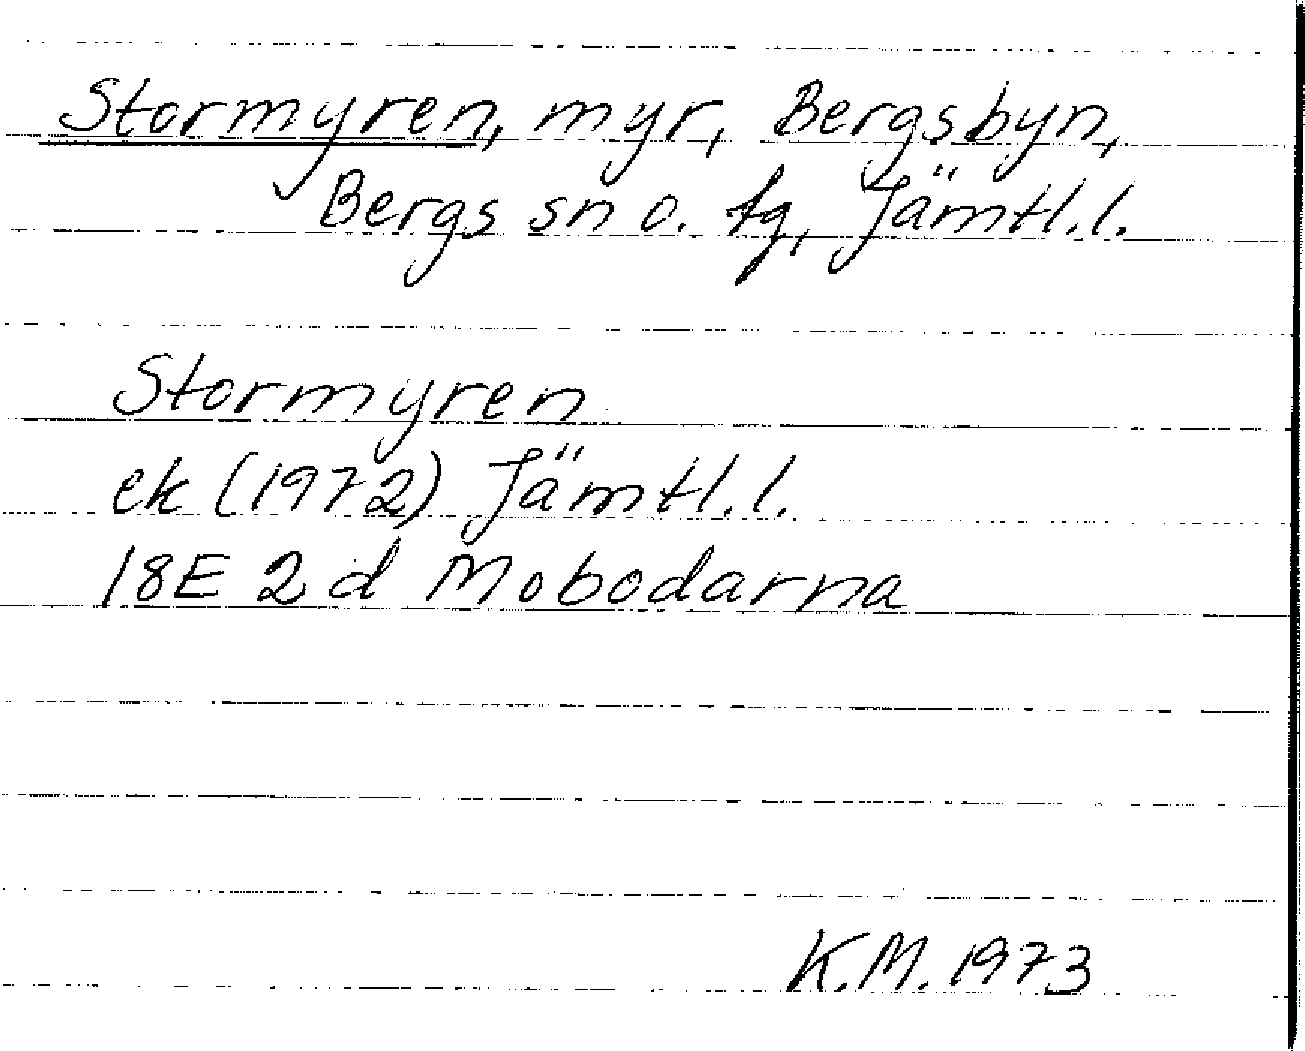 Stormyren, myr, Bergsbyn,
Bergs sn o. tg, Jämtl.l.
Stormyren
ek (1972) Jämtl.l.
18E 2d Mobodarna
K.M. 1973